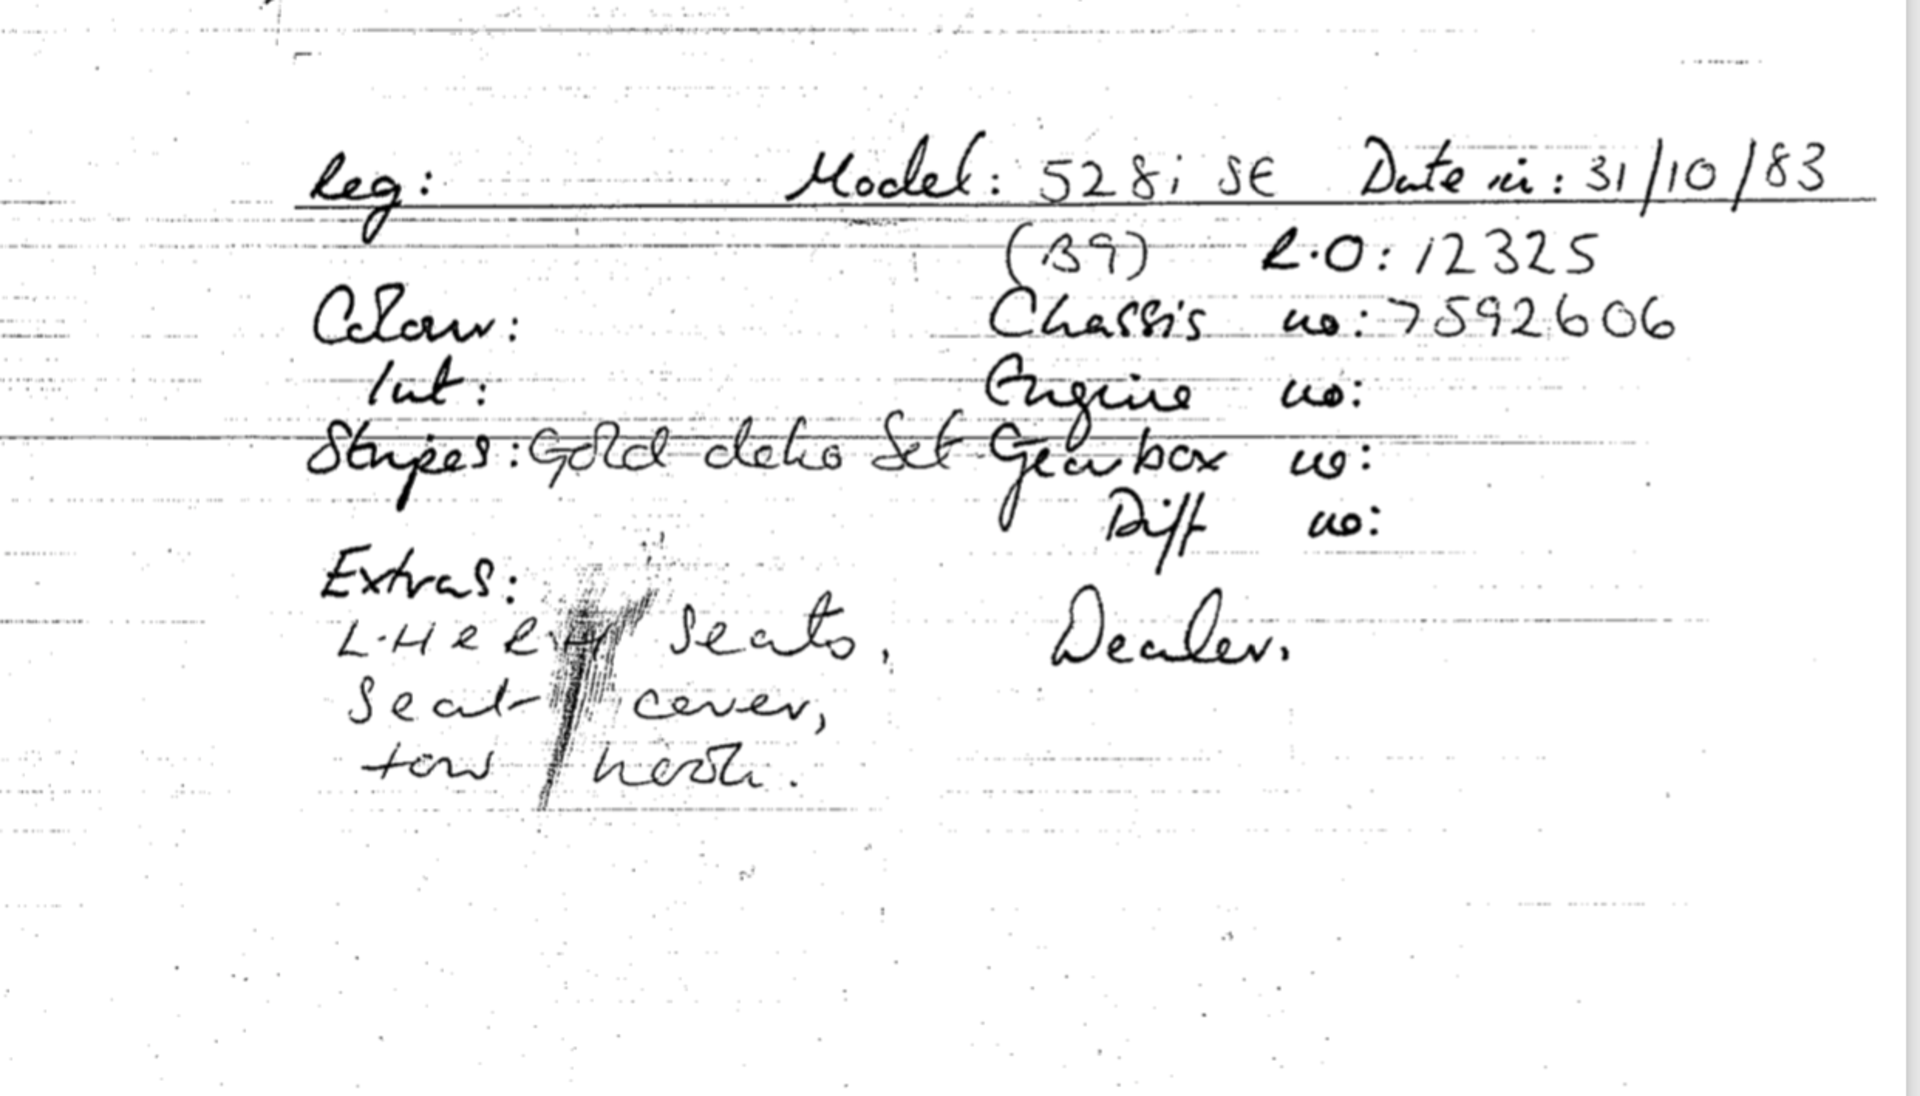 Reg: Model: 528i SE Date in: 31/10/83
(B9) R.O: 12325
Colour: Chassis no: 7592606
Int: Engine no:
Stripes: Gold deko Set Gearbox no:
Diff no:
Extras:
L.H e R.H Seats, Dealer.
Seat cover,
tow hook.